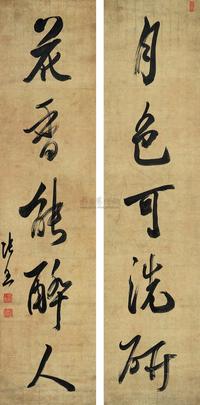 月色可洗研
花香能醉人